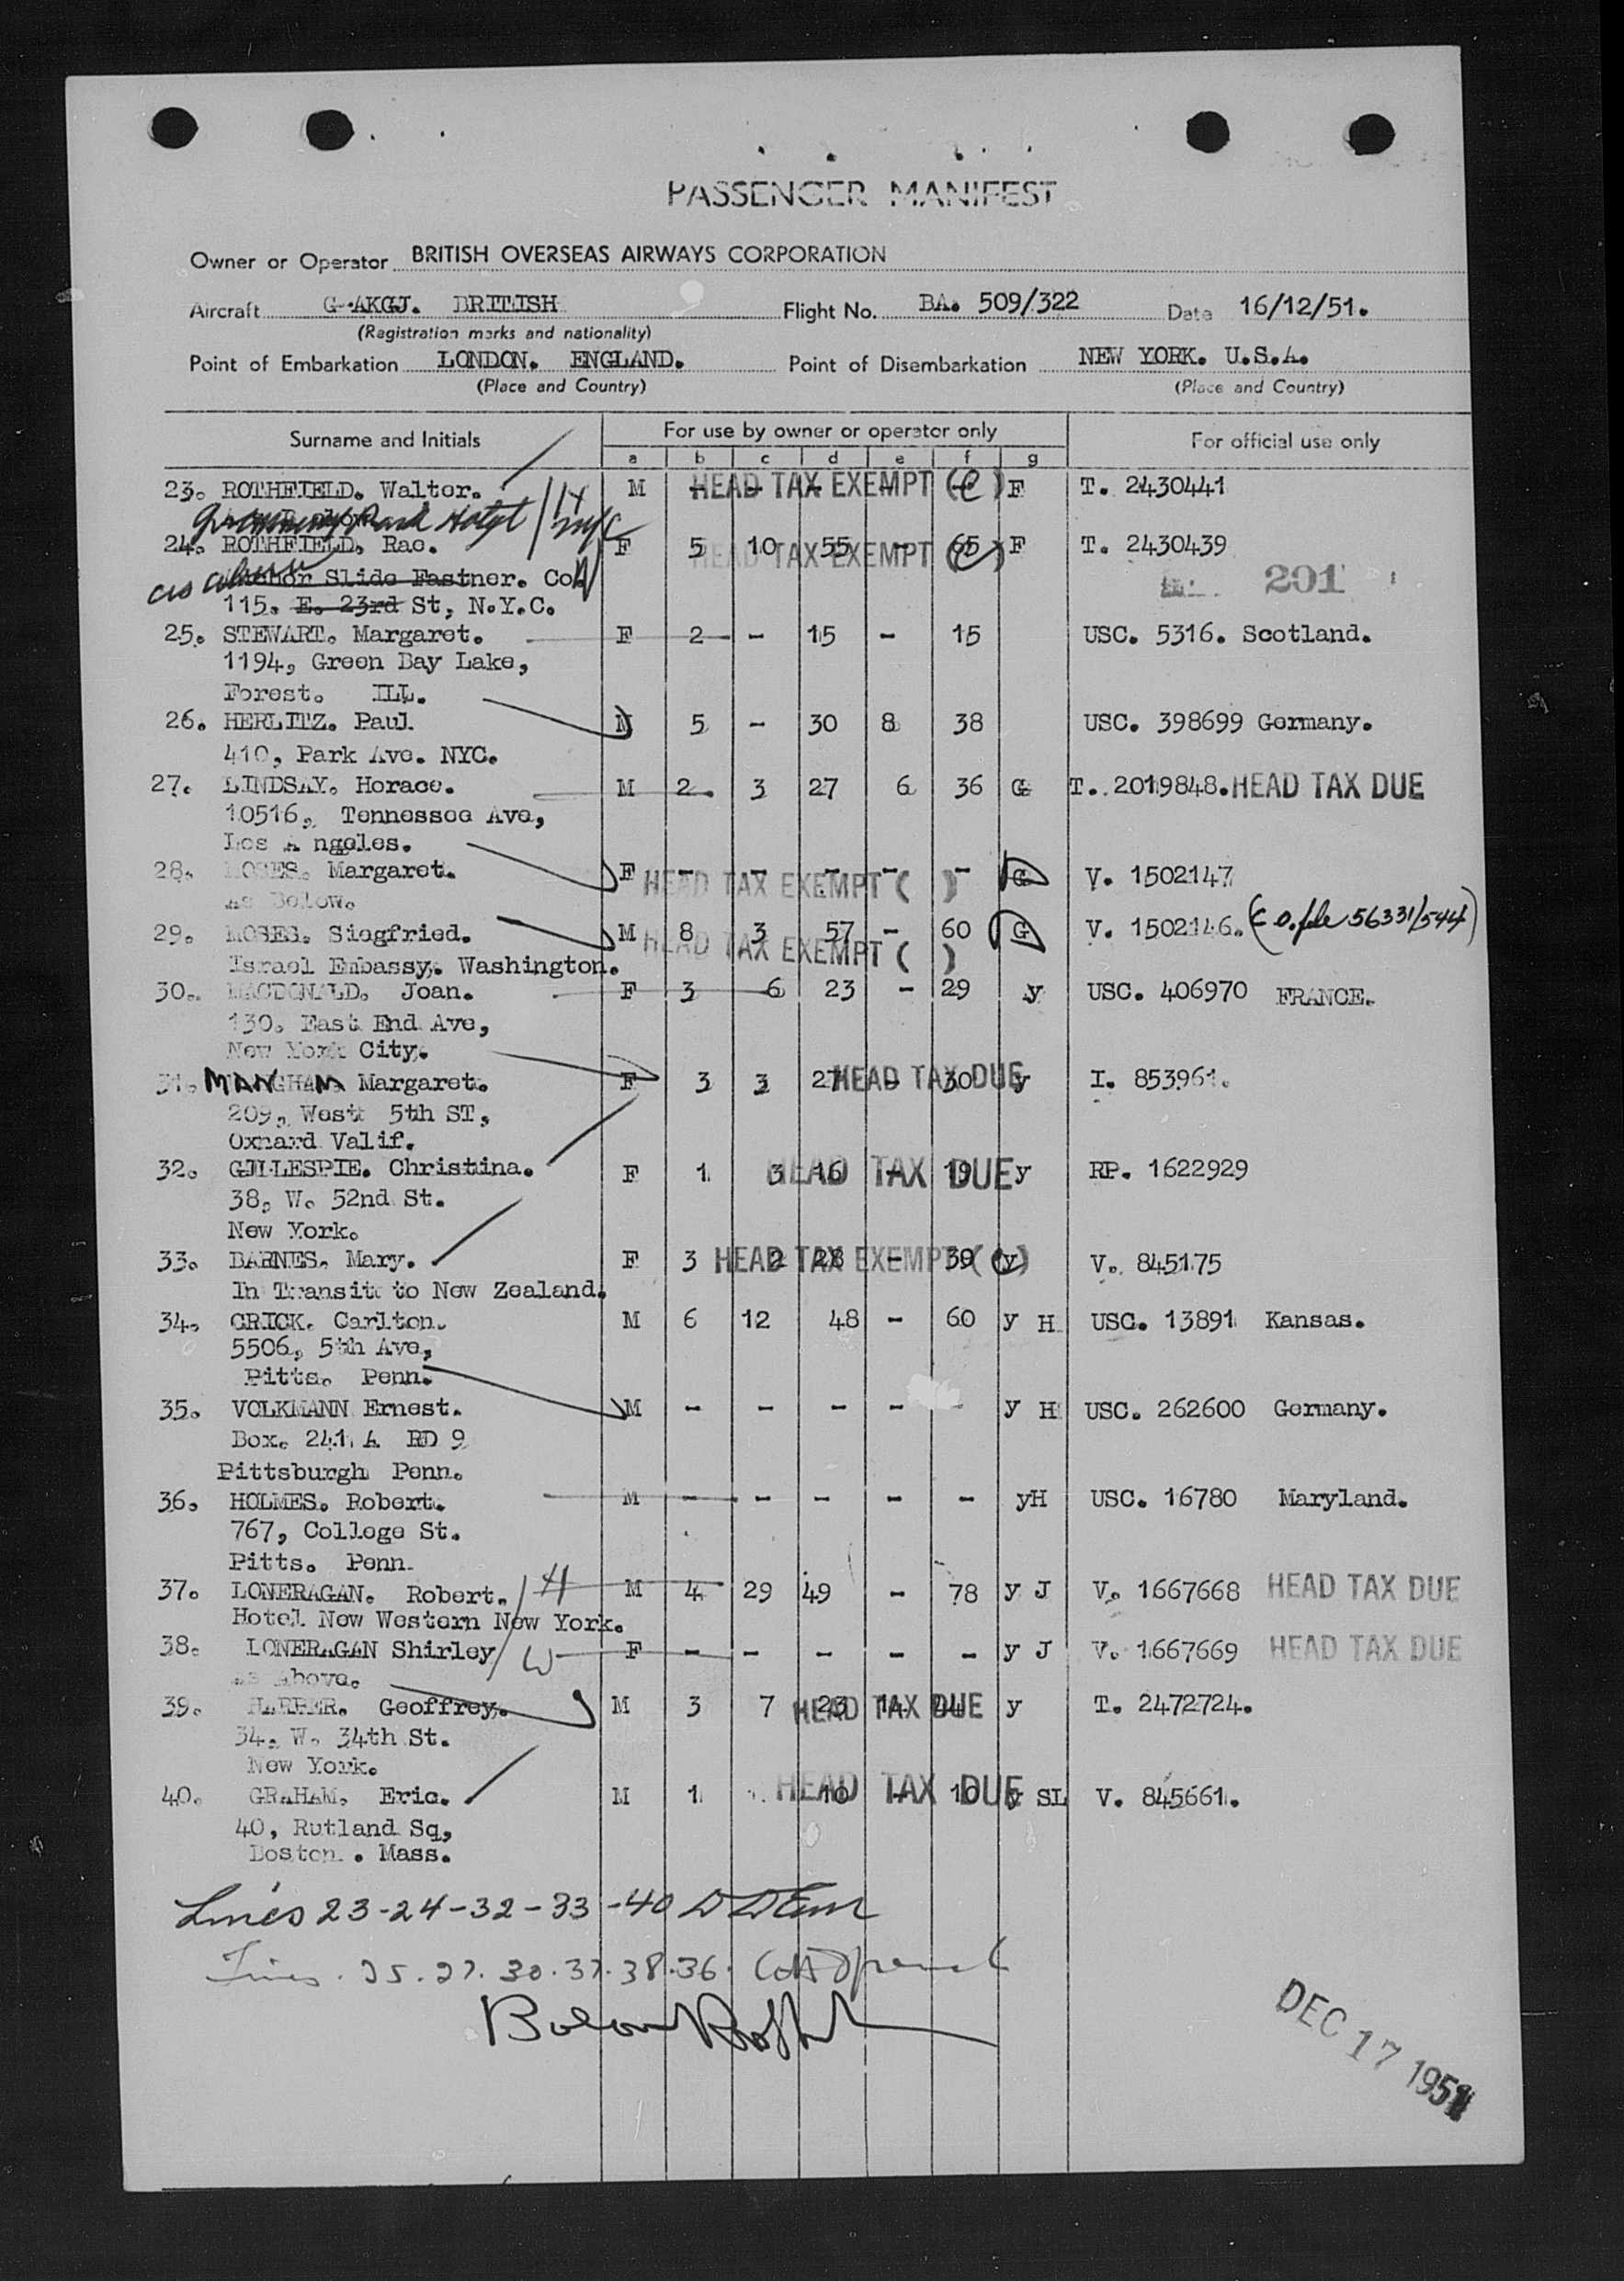 PASSENGER MANIFEST
Owner or Operator BRITISH OVERSEAS AIRWAYS CORPORATION
Aircraft G-AKGJ. BRITISH Flight No. BA. 509/322 Date 16/12/51.
(Registration marks and nationality)
Point of Embarkation LONDON. ENGLAND. Point of Disembarkation NEW YORK. U.S.A.
(Place and Country) (Place and Country)
Surname and Initials For use by owner or operator only For official use only
a b c d e f g
23. ROTHFIELD. Walter. M - - - HEAD TAX EXEMPT (C) F T. 2430441
Park Hotel / H
24. ROTHFIELD. Rae. F 5 10 55 - 65 F T. 2430439
HEAD TAX EXEMPT (C)
Slide Fastner. Co. W
201
115. E. 23rd St, N.Y.C.
25. STEWART. Margaret. F 2 - 15 - 15 USC. 5316. Scotland.
1194, Green Bay Lake,
Forest. ILL.
26. HERLITZ. Paul. M 5 - 30 8 38 USC. 398699 Germany.
410, Park Ave. NYC.
27. LINDSAY. Horace. M 2. 3 27 6 36 G T. 2019848. HEAD TAX DUE
10516, Tennessee Ave,
Los A ngeles.
28. MOSES. Margaret. F - - - - - G V. 1502147
HEAD TAX EXEMPT ( )
As Below.
29. MOSES. Siegfried. M 8 3 57 - 60 G V. 1502146. (C.O. file 56331/544)
HEAD TAX EXEMPT ( )
Israel Embassy. Washington.
30. MACDONALD. Joan. F 3 6 23 - 29 y USC. 406970 FRANCE.
130. East End Ave,
New York City.
31. MANGHAM Margaret. F 3 3 27 - 30 y I. 853961.
HEAD TAX DUE
209, West 5th ST,
Oxnard Valif.
32. GILLESPIE. Christina. F 1 3 16 - 19 y RP. 1622929
HEAD TAX DUE
38, W. 52nd St.
New York.
33. BARNES. Mary. F 3 2 28 - 30 y V. 845175
HEAD TAX EXEMPT ( )
In Transit to New Zealand.
34. CRICK. Carlton. M 6 12 48 - 60 y H USC. 13891 Kansas.
5506, 5th Ave,
Pitts. Penn.
35. VOLKMANN Ernest. M - - - - - y H USC. 262600 Germany.
Box. 241 A RD 9
Pittsburgh Penn.
36. HOLMES. Robert. M - - - - - yH USC. 16780 Maryland.
767, College St.
Pitts. Penn.
37. LONERAGAN. Robert. / H M 4 29 49 - 78 y J V. 1667668 HEAD TAX DUE
Hotel New Western New York.
38. LONERAGAN Shirley / W F - - - - - y J V. 1667669 HEAD TAX DUE
as Above.
39. HARPER. Geoffrey. M 3 7 23 y T. 2472724.
HEAD TAX DUE
34. W. 34th St.
New York.
40. GRAHAM. Eric. M 1 10 - 10 y SL V. 845661.
HEAD TAX DUE
40, Rutland Sq,
Boston. Mass.
Lines 23-24-32-33-40
Lines. 25. 27. 30. 37. 38. 36.
DEC 17 1951